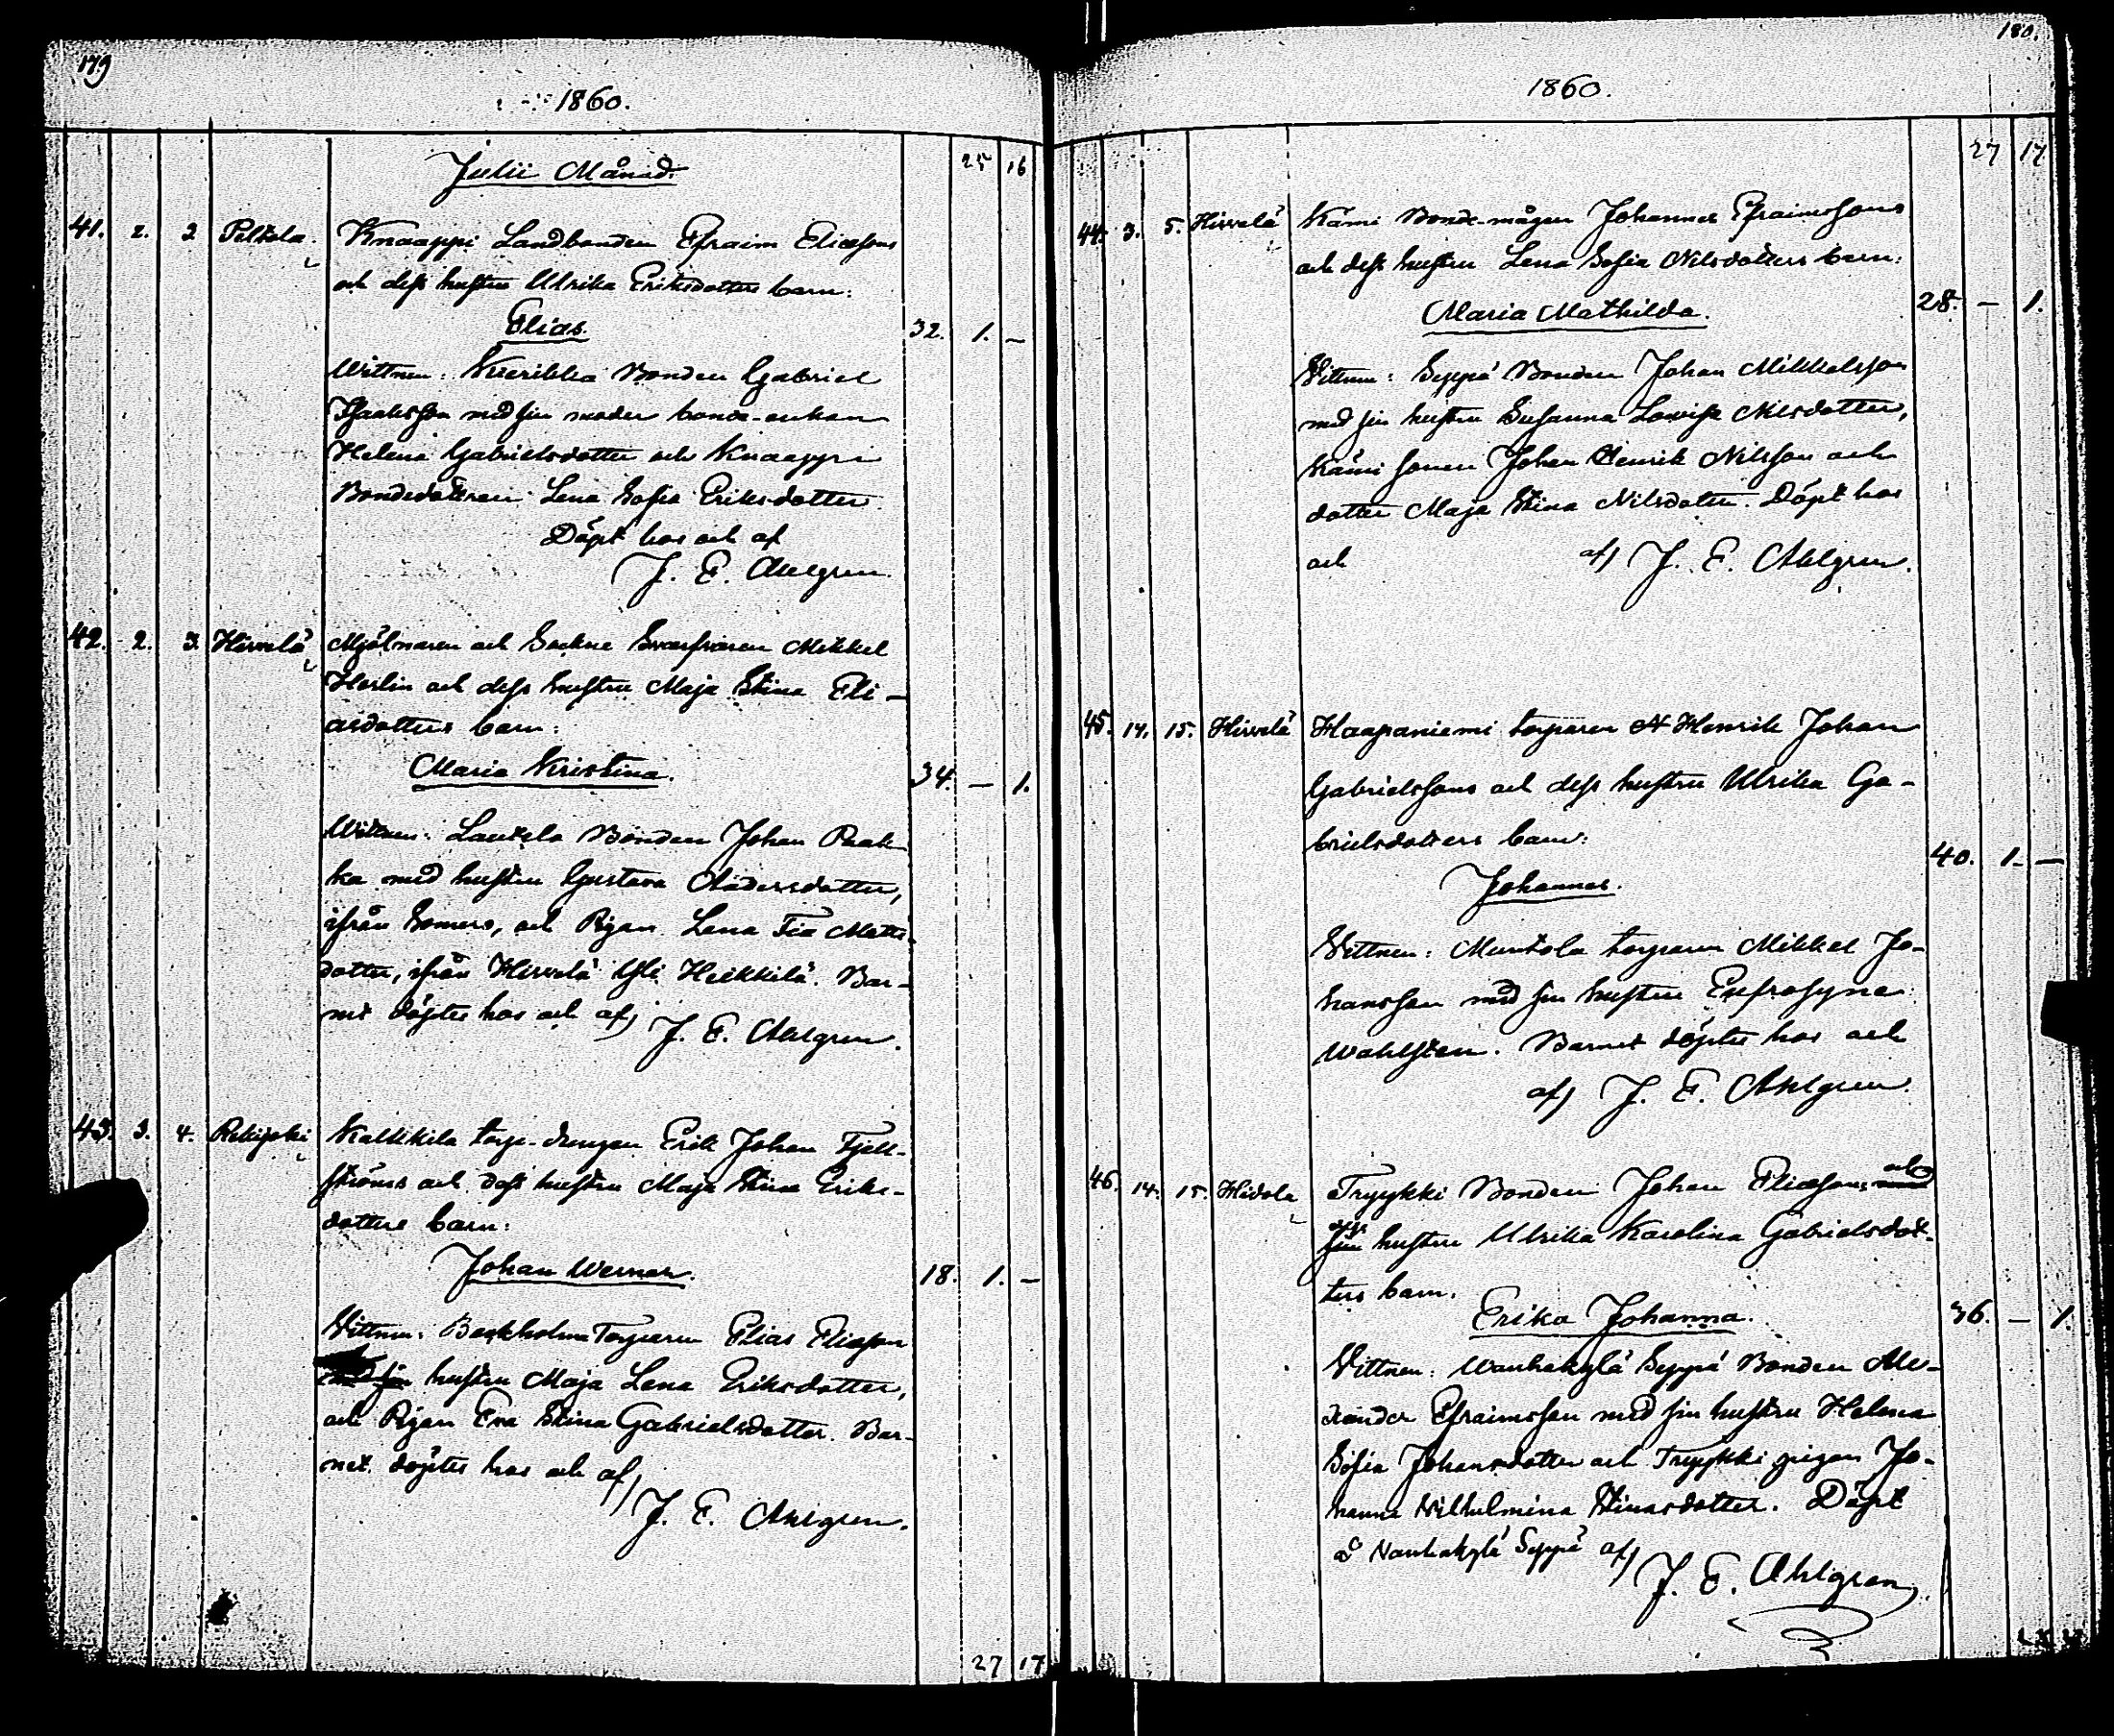 179
1860.
Julii Månad.
25 16
41. 2. 3 Peltola. Knaappi Landbonden Efraim Eliæsons
och dess hustru Ulrika Eriksdotters barn:
Elias. 32. 1. –
Wittnen: Bonden Gabriel
Isaaksson med sin moder bonde-enkan
Helena Gabrielsdotter och Knaappi
Bondedottren Lena Sofia Eriksdotter.
Döpt hos och af
J. E. Ahlgren.
42. 2. 3. Hirvelä Mjölnaren och Sockne Svarfvaren Mikkel
Herlin och dess hustru Maja Stina Eli-
asdotters barn:
Maria Kristina. 34. – 1.
Wittnen: Lautela Bonden Johan Paak-
ka med hustru Gustava Andersdotter,
ifrån Somero, och Pigan Lena Fia Matts-
dotter, ifrån Hirvelä Yli Heikkilä. Bar-
net döptes hos och af
J. E. Ahlgren.
43. 3. 4. Rekijoki Kalkkila torp-drengen Erik Johan Fjell-
ströms och dess hustru Maja Stina Eriks-
dotters barn:
Johan Werner. 18. 1. –
Vittnen: Torparen Elias Eliæson
med sin hustru Maja Lena Eriksdotter,
och Pigan Eva Stina Gabrielsdotter. Bar-
net döptes hos och af
J. E. Ahlgren.
27 17
180.
1860.
27 17
44. 3. 5. Hirvelä Kämi Bonde-mågen Johannes Efraimssons
och dess hustru Lena Sofia Nilsdotters barn:
Maria Mathilda. 28. – 1.
Vittnen: Seppä Bonden Johan Mikkelsson
med sin hustru Susanna Lovisa Nilsdotter,
Kämi sonen Johan Henrik Nilsson och
dotter Maja Stina Nilsdotter. Döpt hos
och af J. E. Ahlgren.
45. 14. 15. Hirvelä Haapaniemi torparen Henrik Johan
Gabrielssons och dess hustru Ulrika Ga-
brielsdotters barn:
Johannes. 40. 1. –
Vittnen: Muntola torparen Mikkel Jo-
hansson med sin hustru Eufrosyne
Wahlsten. Barnet döptes hos och
af J. E. Ahlgren
46. 14. 15. Hidola Tryykki Bonden Johan Eliæsons och
dess hustru Ulrika Karolina Gabrielsdot-
ters barn.
Erika Johanna. 36. – 1.
Vittnen: Wanhakylä Seppä Bonden Ale-
xander Efraimsson med sin hustru Helena
Sofia Johansdotter och Tryykki pigan Jo-
hanna Wilhelmina Stinasdotter. Döpt
å Vanhakylä Seppä af
J. E. Ahlgren